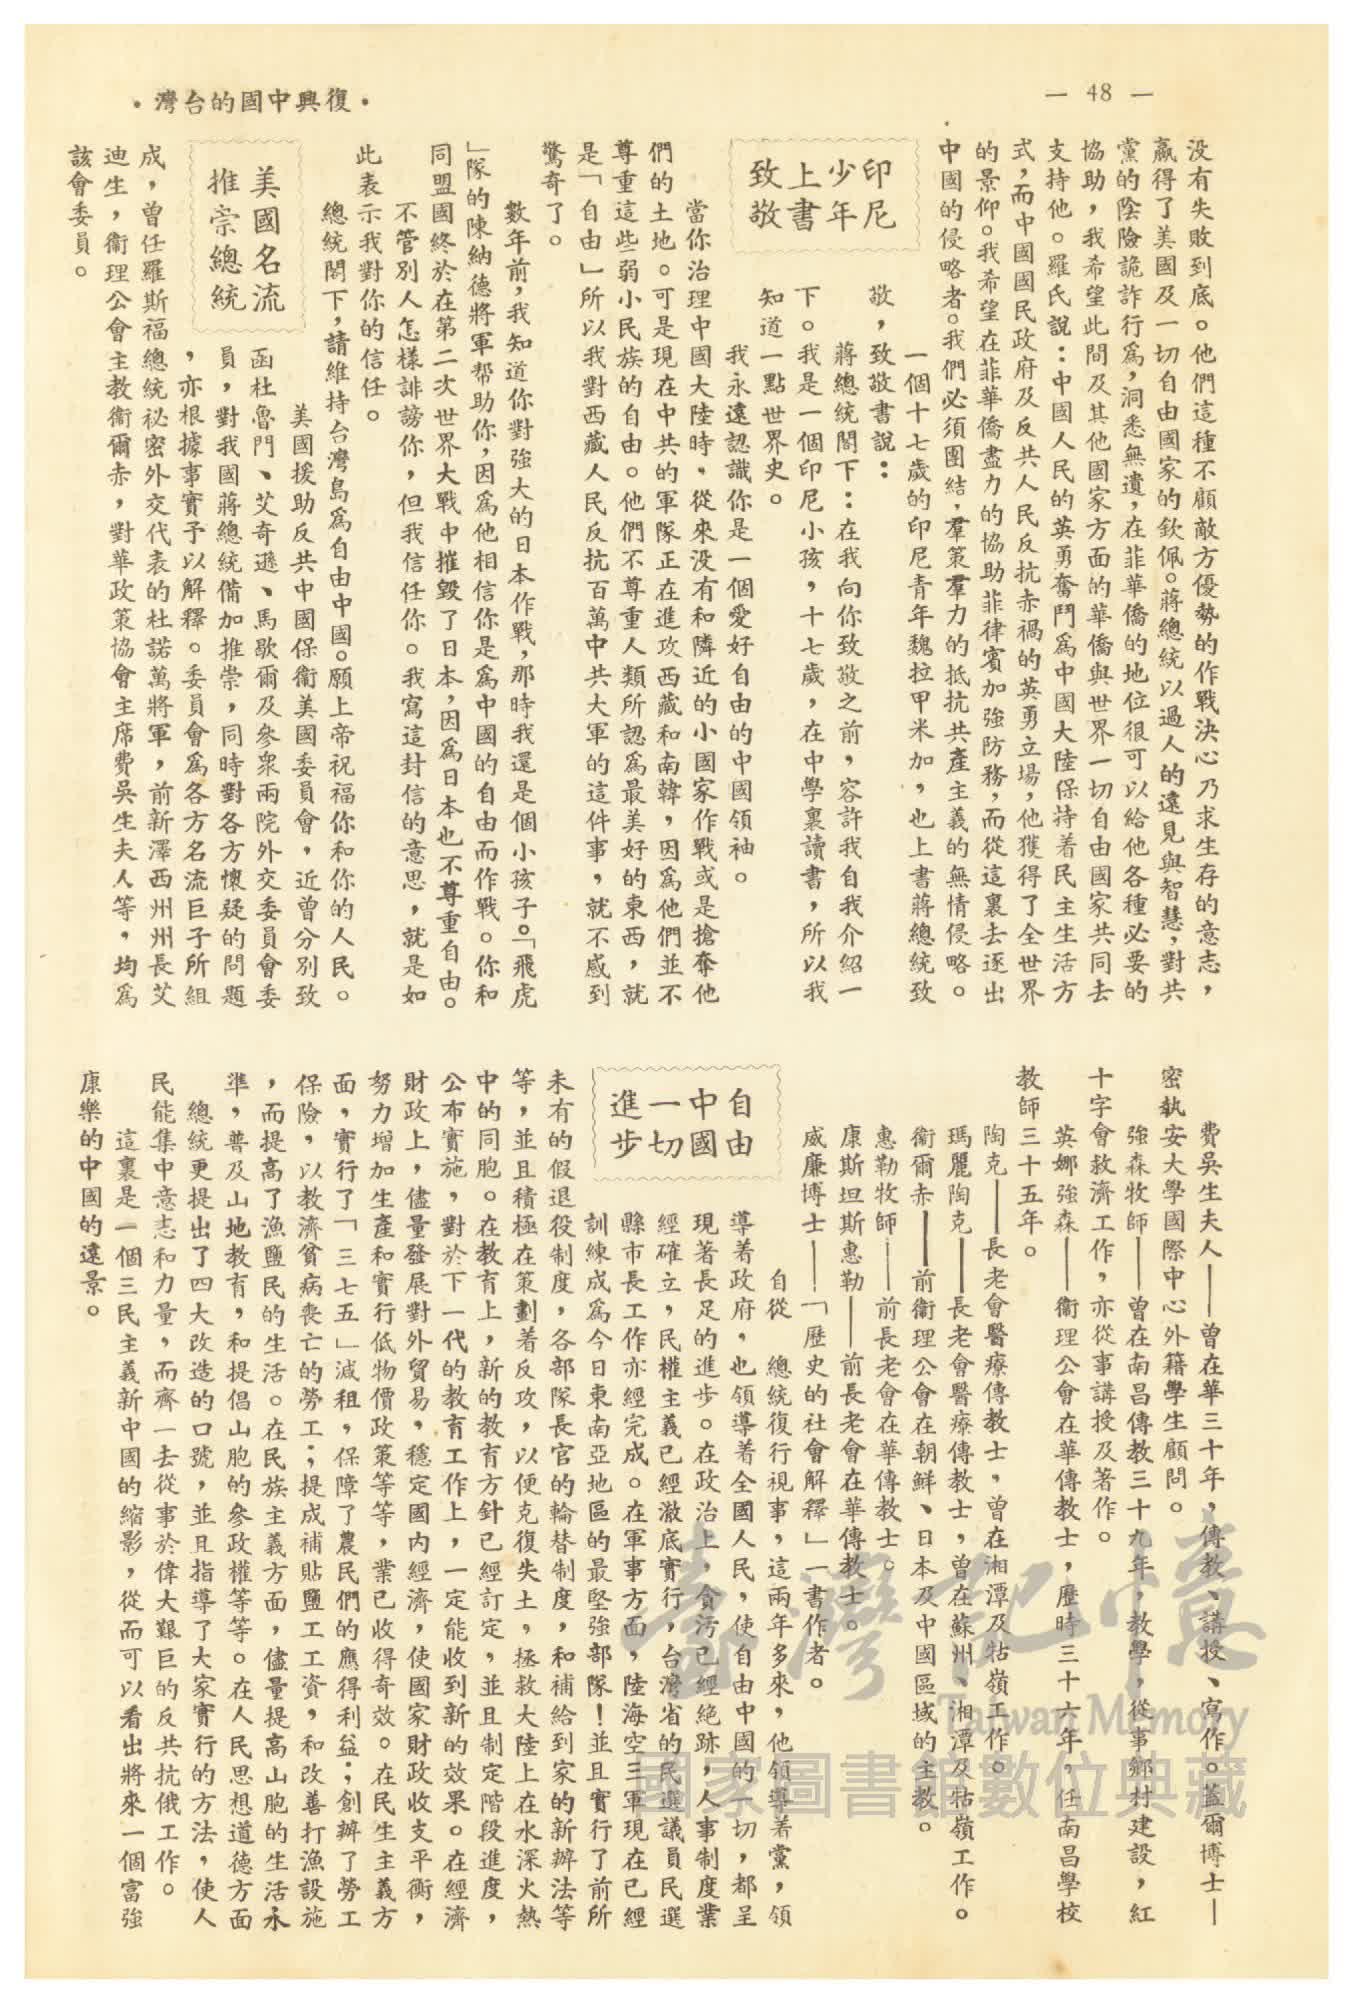 — 48 —
・復興中國的台灣・
没有失敗到底。他們這種不顧敵方優勢的作戰決心乃求生存的意志，
贏得了美國及一切自由國家的欽佩。蔣總統以過人的遠見與智慧，對共
黨的陰險詭詐行爲，洞悉無遺，在菲華僑的地位很可以給他各種必要的
協助，我希望此間及其他國家方面的華僑與世界一切自由國家共同去
支持他。羅氏說：中國人民的英勇奮鬥爲中國大陸保持着民主生活方
式，而中國國民政府及反共人民反抗赤禍的英勇立場，他獲得了全世界
的景仰。我希望在菲華僑盡力的協助菲律賓加強防務，而從這裏去逐出
中國的侵略者。我們必須團結，羣策羣力的抵抗共產主義的無情侵略。
印尼少年上書致敬
一個十七歲的印尼青年魏拉甲米加，也上書蔣總統致
敬，致敬書說：
蔣總統閣下：在我向你致敬之前，容許我自我介紹一
下。我是一個印尼小孩，十七歲，在中學裏讀書，所以我
知道一點世界史。
我永遠認識你是一個愛好自由的中國領袖。
當你治理中國大陸時，從來没有和隣近的小國家作戰或是搶奪他
們的土地。可是現在中共的軍隊正在進攻西藏和南韓，因爲他們並不
尊重這些弱小民族的自由。他們不尊重人類所認爲最美好的東西，就
是「自由」所以我對西藏人民反抗百萬中共大軍的這件事，就不感到
驚奇了。
數年前，我知道你對強大的日本作戰，那時我還是個小孩子。「飛虎
」隊的陳納德將軍帮助你，因爲他相信你是爲中國的自由而作戰。你和
同盟國終於在第二次世界大戰中摧毀了日本，因爲日本也不尊重自由。
不管別人怎樣誹謗你，但我信任你。我寫這封信的意思，就是如
此表示我對你的信任。
總統閣下，請維持台灣島爲自由中國。願上帝祝福你和你的人民。
美國名流推崇總統
美國援助反共中國保衞美國委員會，近曾分別致
函杜魯門、艾奇遜、馬歇爾及參衆兩院外交委員會委
員，對我國蔣總統備加推崇，同時對各方懷疑的問題
，亦根據事實予以解釋。委員會爲各方名流巨子所組
成，曾任羅斯福總統祕密外交代表的杜諾萬將軍，前新澤西州州長艾
迪生，衞理公會主教衞爾赤，對華政策協會主席費吳生夫人等，均爲
該會委員。
費吳生夫人——曾在華三十年，傳教、講授、寫作。蓋爾博士—
密執安大學國際中心外籍學生顧問。
強森牧師——曾在南昌傳教三十九年，教學，從事鄉村建設，紅
十字會救濟工作，亦從事講授及著作。
英娜強森——衞理公會在華傳教士，歷時三十六年，任南昌學校
教師三十五年。
陶克——長老會醫療傳教士，曾在湘潭及牯嶺工作。
瑪麗陶克——長老會醫療傳教士，曾在蘇州、湘潭及牯嶺工作。
衞爾赤——前衞理公會在朝鮮、日本及中國區域的主教。
惠勒牧師——前長老會在華傳教士。
康斯坦斯惠勒——前長老會在華傳教士。
威廉博士——「歷史的社會解釋」一書作者。
自由中國一切進步
自從　總統復行視事，這兩年多來，他領導着黨，領
導着政府，也領導着全國人民，使自由中國的一切，都呈
現著長足的進步。在政治上，貪污已經絕跡，人事制度業
經確立，民權主義已經澈底實行，台灣省的民選議員民選
縣市長工作亦經完成。在軍事方面，陸海空三軍現在已經
訓練成爲今日東南亞地區的最堅強部隊！並且實行了前所
未有的假退役制度，各部隊長官的輪替制度，和補給到家的新辦法等
等，並且積極在策劃着反攻，以便克復失土，拯救大陸上在水深火熱
中的同胞。在教育上，新的教育方針已經訂定，並且制定階段進度，
公布實施，對於下一代的教育工作上，一定能收到新的效果。在經濟
財政上，儘量發展對外貿易，穩定國內經濟，使國家財政收支平衡，
努力增加生產和實行低物價政策等等，業已收得奇效。在民生主義方
面，實行了「三七五」減租，保障了農民們的應得利益；創辦了勞工
保險，以教濟貧病喪亡的勞工；提成補貼鹽工工資，和改善打漁設施
，而提高了漁鹽民的生活。在民族主義方面，儘量提高山胞的生活水
準，普及山地教育，和提倡山胞的參政權等等。在人民思想道德方面
總統更提出了四大改造的口號，並且指導了大家實行的方法，使人
民能集中意志和力量，而齊一去從事於偉大艱巨的反共抗俄工作。
這裏是一個三民主義新中國的縮影，從而可以看出將來一個富強
康樂的中國的遠景。
臺灣記憶
Taiwan Memory
國家圖書館數位典藏